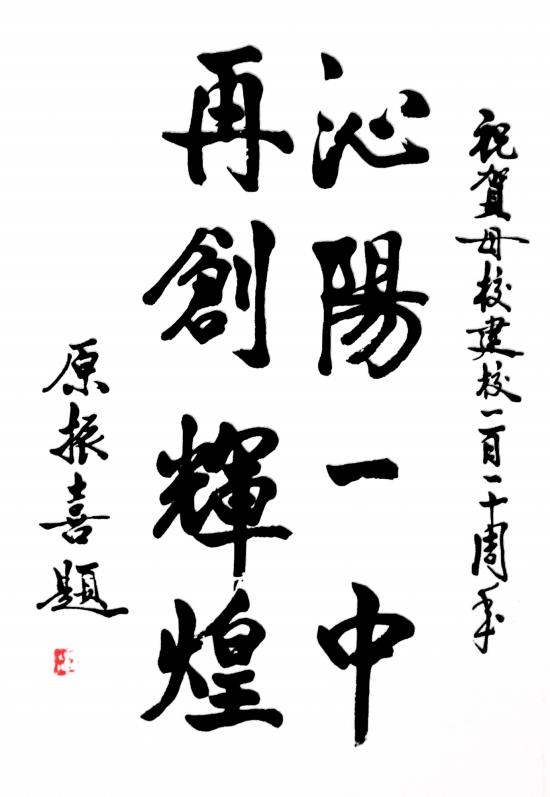 祝賀母校建校一百一十周年
沁陽一中
再創輝煌
原振喜題